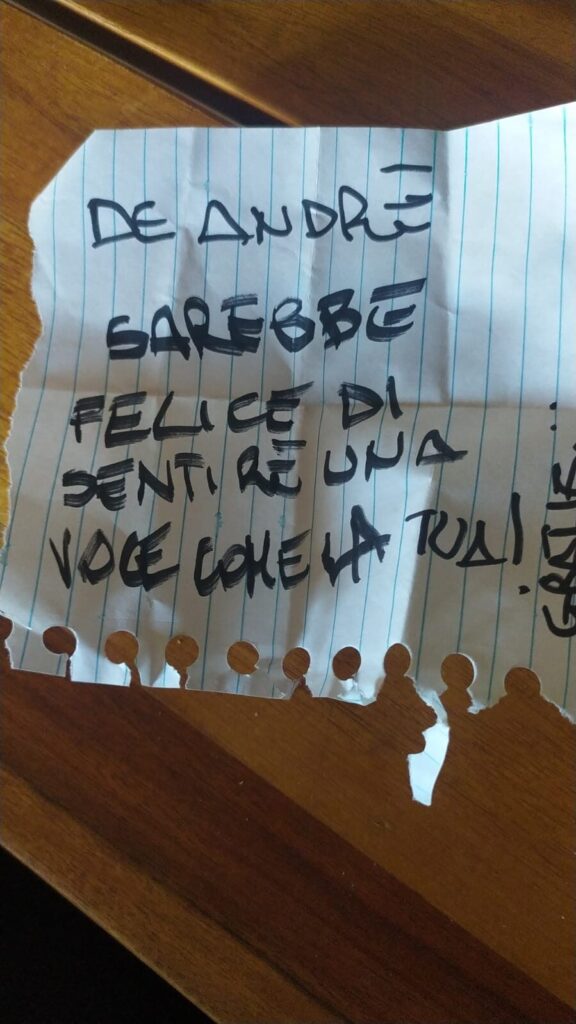 DE ANDRÈ
SAREBBE
FELICE DI
SENTIRE UNA
VOCE COME LA TUA!
GRAZIE..